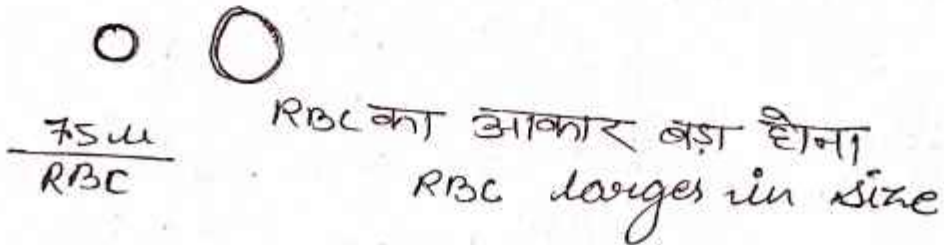 75 u
RBC
RBC का आकार बड़ा होना
RBC larges in size